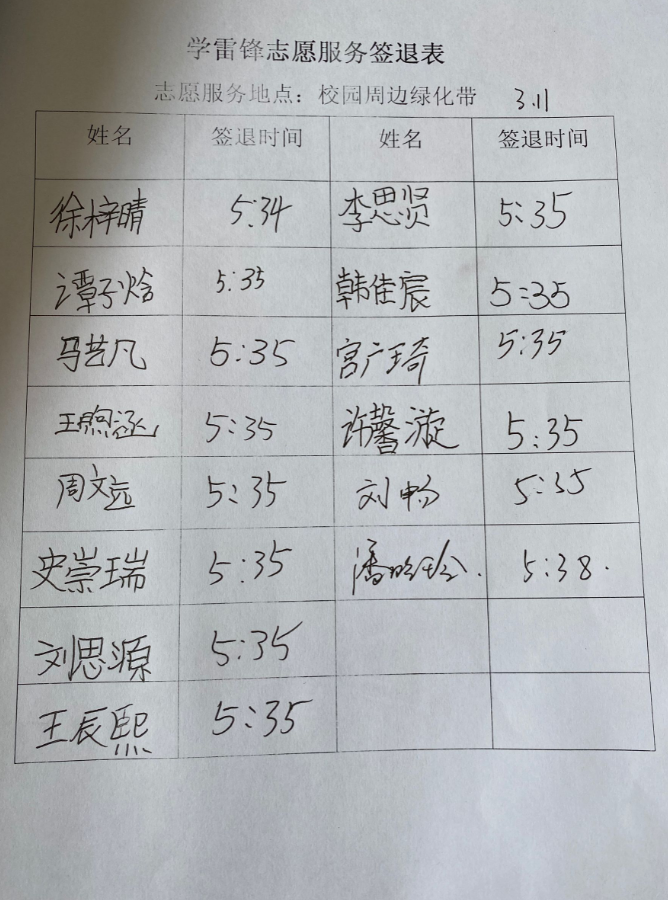 学雷锋志愿服务签退表
志愿服务地点：校园周边绿化带 3.11
姓名 签退时间 姓名 签退时间
徐梓晴 5:34 李思贤 5:35
谭子焓 5:35 韩佳宸 5:35
马艺凡 5:35 宫广琦 5:35
王煦涵 5:35 许馨漩 5:35
周文远 5:35 刘畅 5:35
史崇瑞 5:35 潘 5:38.
刘思源 5:35
王辰熙 5:35